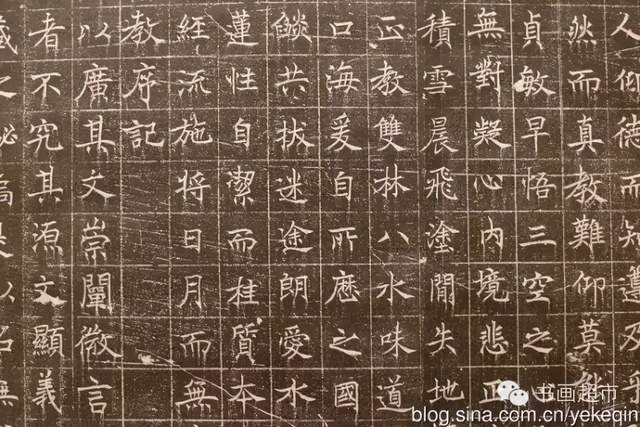 人仰德而知遵及乎
然而真教難仰莫能
貞敏早悟三空之心
無對凝心內境悲正
積雪晨飛塗閒失地
正教雙林八水味道
口海爰自所歷之國
燄共拔迷途朗愛水
蓮性自潔而桂質本
經流施將日月而無
教序記
以廣其文崇闡微言
者不究其源文顯義
之
是以名無
书画超市
blog.sina.com.cn/yekeqin